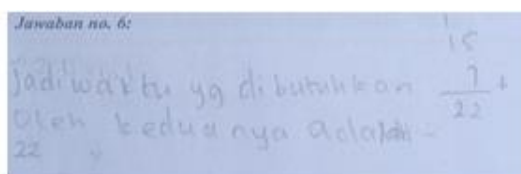 Jawaban no. 6:
15
7 +
22
jadi waktu yg dibutuhkan
oleh keduanya adalah
22